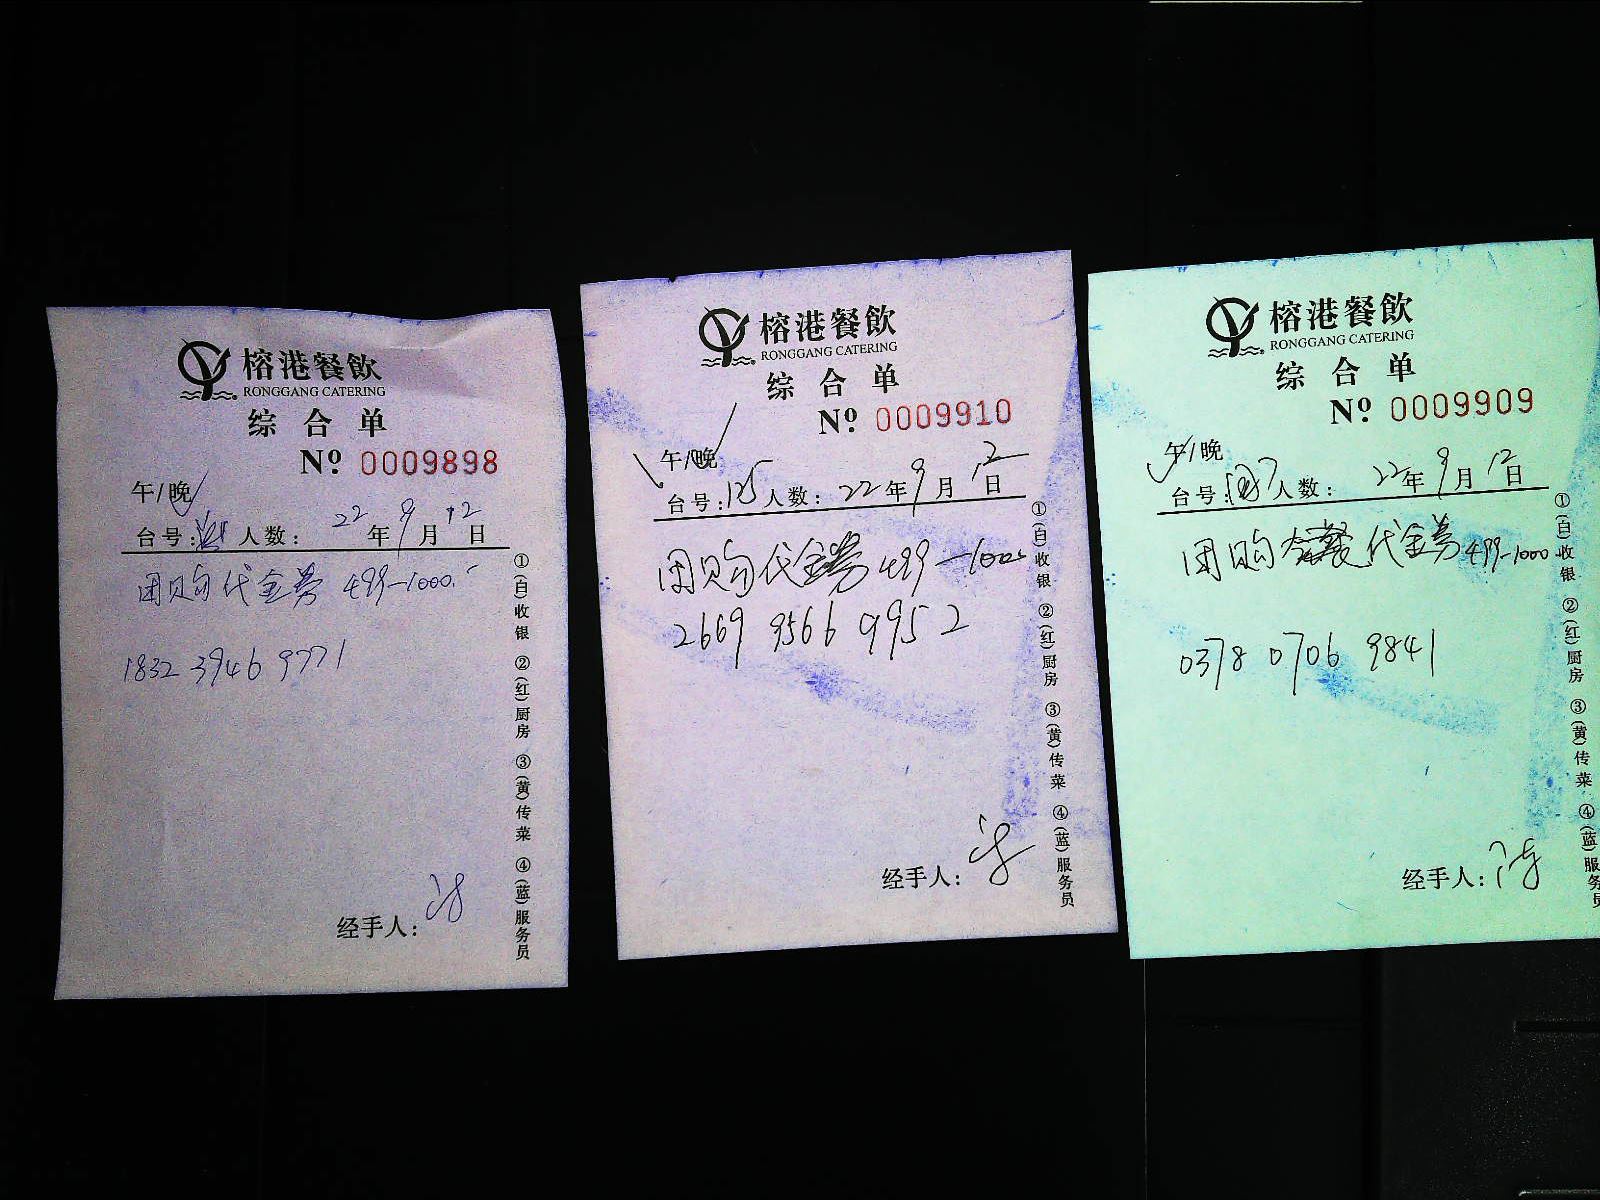 榕港餐飲
RONGGANG CATERING
综合单
Nº 0009898
午/晚
台号: 人数: 22年9月12日
团购代金券 499-1000.-
1832 3946 9771
经手人:
①(白)收银 ②(红)厨房 ③(黄)传菜 ④(蓝)服务员
榕港餐飲
RONGGANG CATERING
综合单
Nº 0009910
午/晚
台号:125人数: 22年9月12日
团购代金券 499-1000.-
2669 9566 9952
经手人:
①(白)收银 ②(红)厨房 ③(黄)传菜 ④(蓝)服务员
榕港餐飲
RONGGANG CATERING
综合单
Nº 0009909
午/晚
台号: 人数: 22年9月12日
团购代金券 499-1000
0378 0706 9841
经手人:
①(白)收银 ②(红)厨房 ③(黄)传菜 ④(蓝)服务员